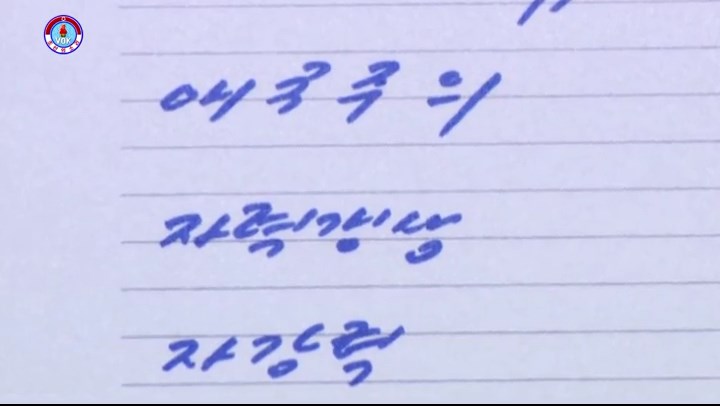 VOK
애국주의
자력갱생
자강력